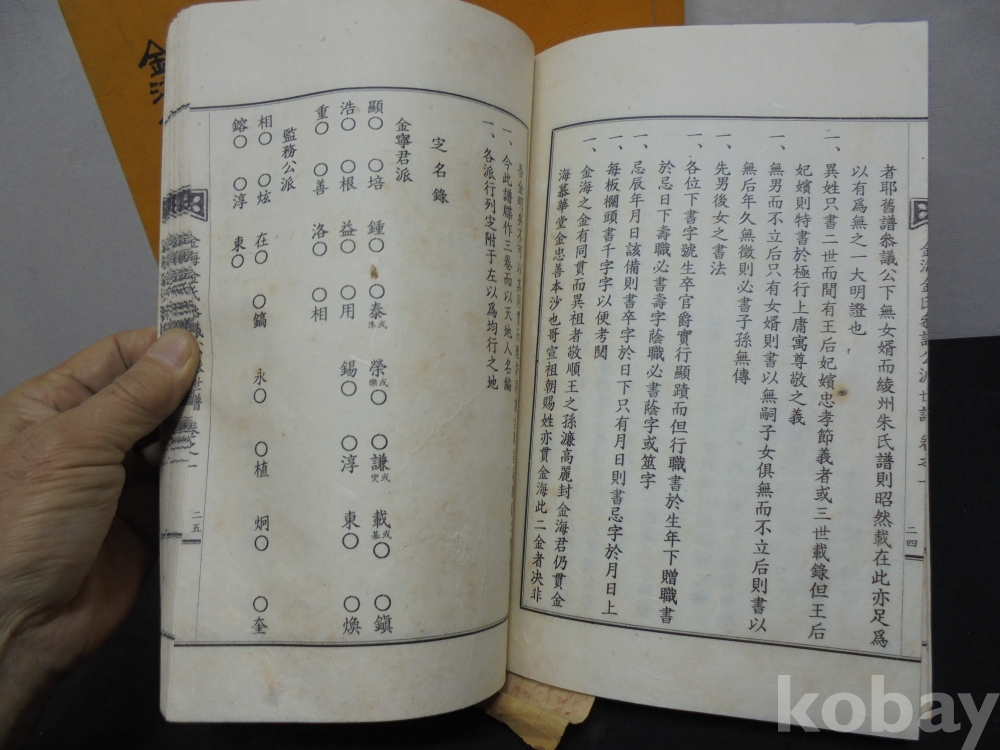 者耶舊譜參議公下無女婿而綾州朱氏譜則昭然載在此亦足爲
以有爲無之一大明證也
一、異姓只書二世而間有王后妃嬪忠孝節義者或三世載錄但王后
妃嬪則特書於極行上庸寓尊敬之義
一、無男而不立后只有女婿則書以無嗣子女俱無而不立后則書以
無后年久無徵則必書子孫無傳
一、先男後女之書法
一、各位下書字號生卒官爵實行顯蹟而但行職書於生年下贈職書
於忌日下壽職必書壽字蔭職必書蔭字或筮字
一、忌辰年月日該備則書卒字於日下只有月日則書忌字於月日上
一、每板欄頭書千字字以便考閱
一、金海之金有同貫而異祖者敬順王之孫濂高麗封金海君仍貫金
海慕華堂金忠善本沙也哥宣祖朝賜姓亦貫金海此二金者决非
二四
一、今此譜牒作三卷而以天地人名編
一、各派行列定附于左以爲均行之地
定名錄
金寧君派
顯〇 〇培 鍾〇 〇泰或洙 榮或樂〇 〇謙或燮 載或基〇 〇鎭
浩〇 〇根 益〇 〇用 錫〇 〇淳 東〇 〇煥
重〇 〇善 洛〇 〇相
監務公派
相〇 〇炫 在〇 〇鎬 永〇 〇植 炯〇 〇奎
鎔〇 〇淳 東〇
二五
kobay